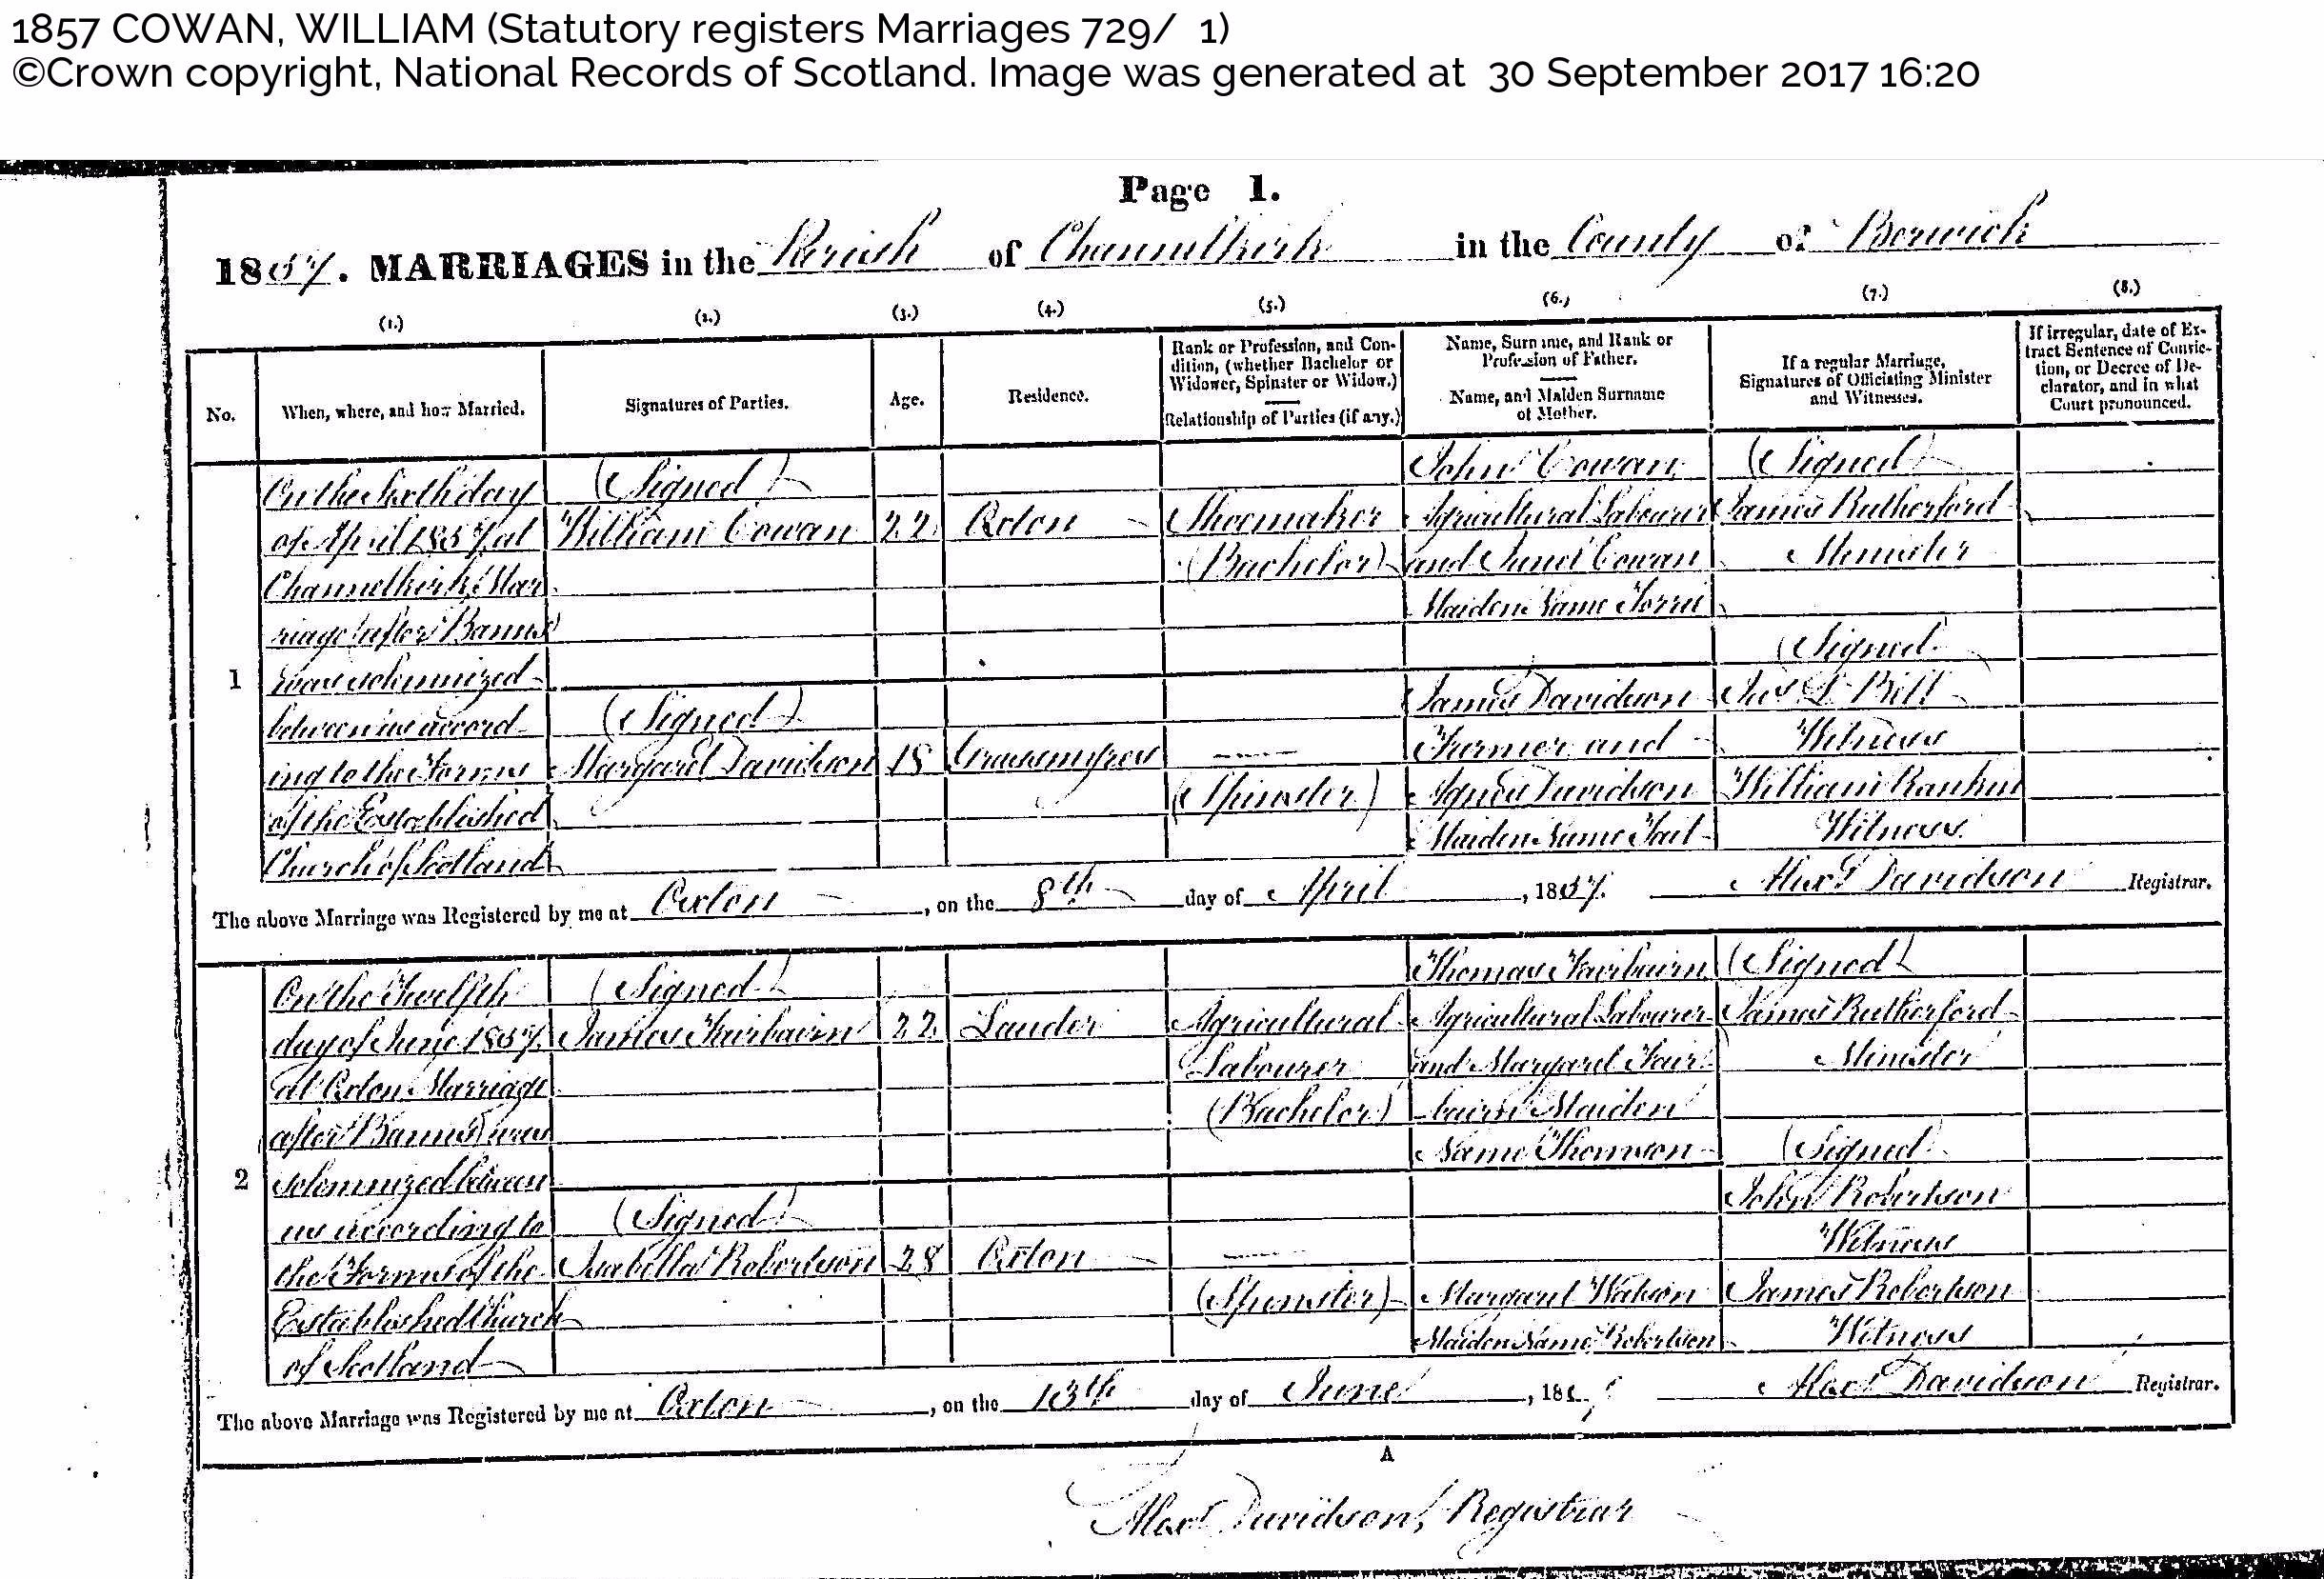 1857 COWAN, WILLIAM (Statutory registers Marriages 729/ 1)
©Crown copyright, National Records of Scotland. Image was generated at 30 September 2017 16:20
Page 1.
1857. MARRIAGES in the Parish of Channelkirk in the County of Berwick
(1.) (2.) (3.) (4.) (5.) (6.) (7.) (8.)
No.
When, where, and how Married.
Signatures of Parties.
Age.
Residence.
Rank or Profession, and Con-
dition, (whether Bachelor or
Widower, Spinster or Widow.)
Relationship of Parties (if any.)
Name, Surname, and Rank or
Profession of Father.
Name, and Maiden Surname
of Mother.
If a regular Marriage,
Signatures of Officiating Minister
and Witnesses.
If irregular, date of Ex-
tract Sentence of Convic-
tion, or Decree of De-
clarator, and in what
Court pronounced.
1
On the Sixth day
of April 1857 at
Channelkirk Mar
riage (after Banns)
was solemnized
between us accord
ing to the Forms
of the Established
Church of Scotland
(Signed)
William Cowan
22
Oxton
Shoemaker
(Bachelor)
John Cowan
Agricultural Labourer
and Janet Cowan
Maiden Name
(Signed)
James Rutherford
Minister
(Signed)
Margaret Davidson
18
(Spinster)
James Davidson
Farmer and
Agnes Davidson
Maiden Name Tait
(Signed
Bell
Witness
William Rankin
Witness
The above Marriage was Registered by me at Oxton, on the 8th day of April, 1857. Alexr Davidson Registrar.
2
On the Twelfth
day of June 1857
at Oxton Marriage
after Banns) was
solemnized between
us according to
the Forms of the
Established Church
of Scotland
(Signed)
James Fairbairn
22
Lauder
Agricultural
Labourer
(Bachelor)
Thomas Fairbairn
Agricultural Labourer
and Margaret Fair
bairn Maiden
Name Thomson
(Signed)
James Rutherford
Minister
(Signed)
Isabella Robertson
28
Oxton
(Spinster)
Margaret Watson
Maiden Name Robertson
(Signed)
John Robertson
Witness
James Robertson
Witness
The above Marriage was Registered by me at Oxton, on the 13th day of June, 18 Alexr Davidson Registrar.
A
Alexr Davidson, Registrar